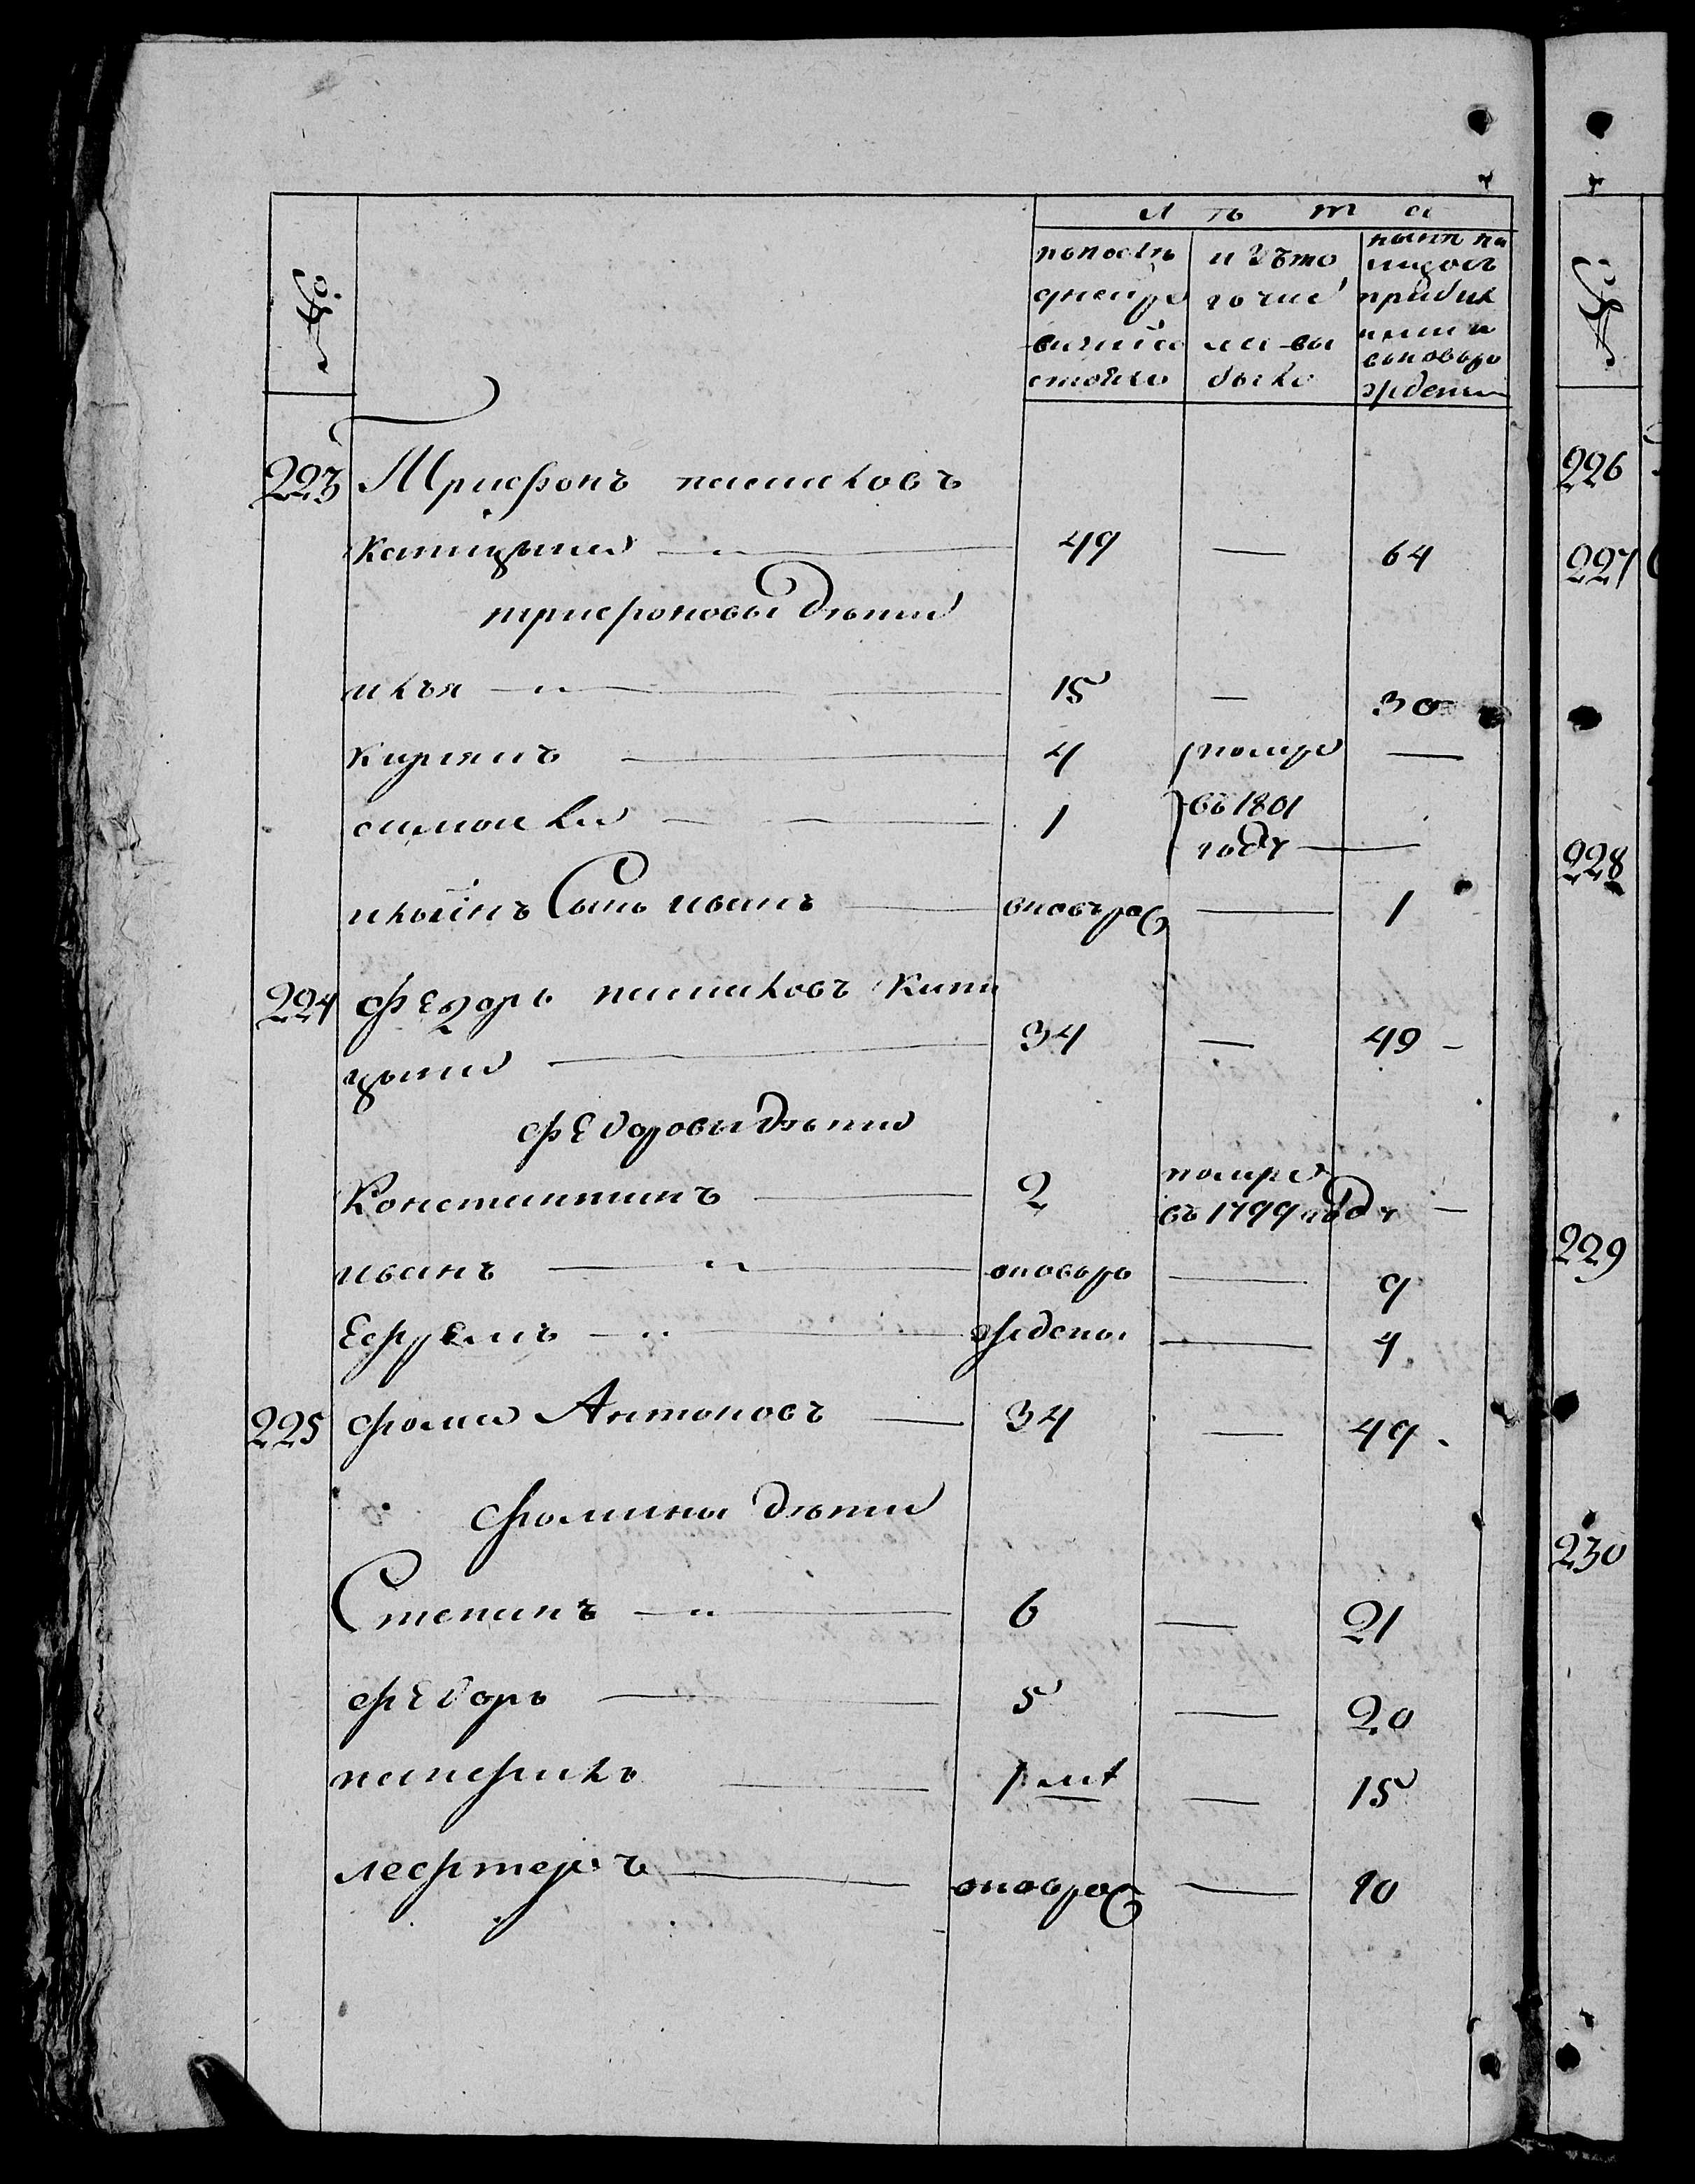 №
л ѣ т а
попослѣ
днейре
визiи
стояло
изъто
гочис
ла вы
было
нынѣ на
лицо съ
прибы
лыми и
вновьро
жденны
223 Трифонъ паш­ковъ
Капицынъ 49 — 64
трифоновы дѣти
илья 15 — 30
кирьянъ 4 помре —
1 въ 1801
году —
ильинъ Сынъ иванъ вновьро — 1
224 федоръ пашковъ Капи
цынъ 34 — 49
федоровы дѣти
Константинъ 2 помре
въ 1799 году —
иванъ вновьро — 9
Ефремъ ждены — 4
225 фома Антоновъ 34 — 49
фомины дѣти
Степанъ 6 — 21
федоръ 5 — 20
1 — 15
вновро — 10
№
226
227
228
229
230